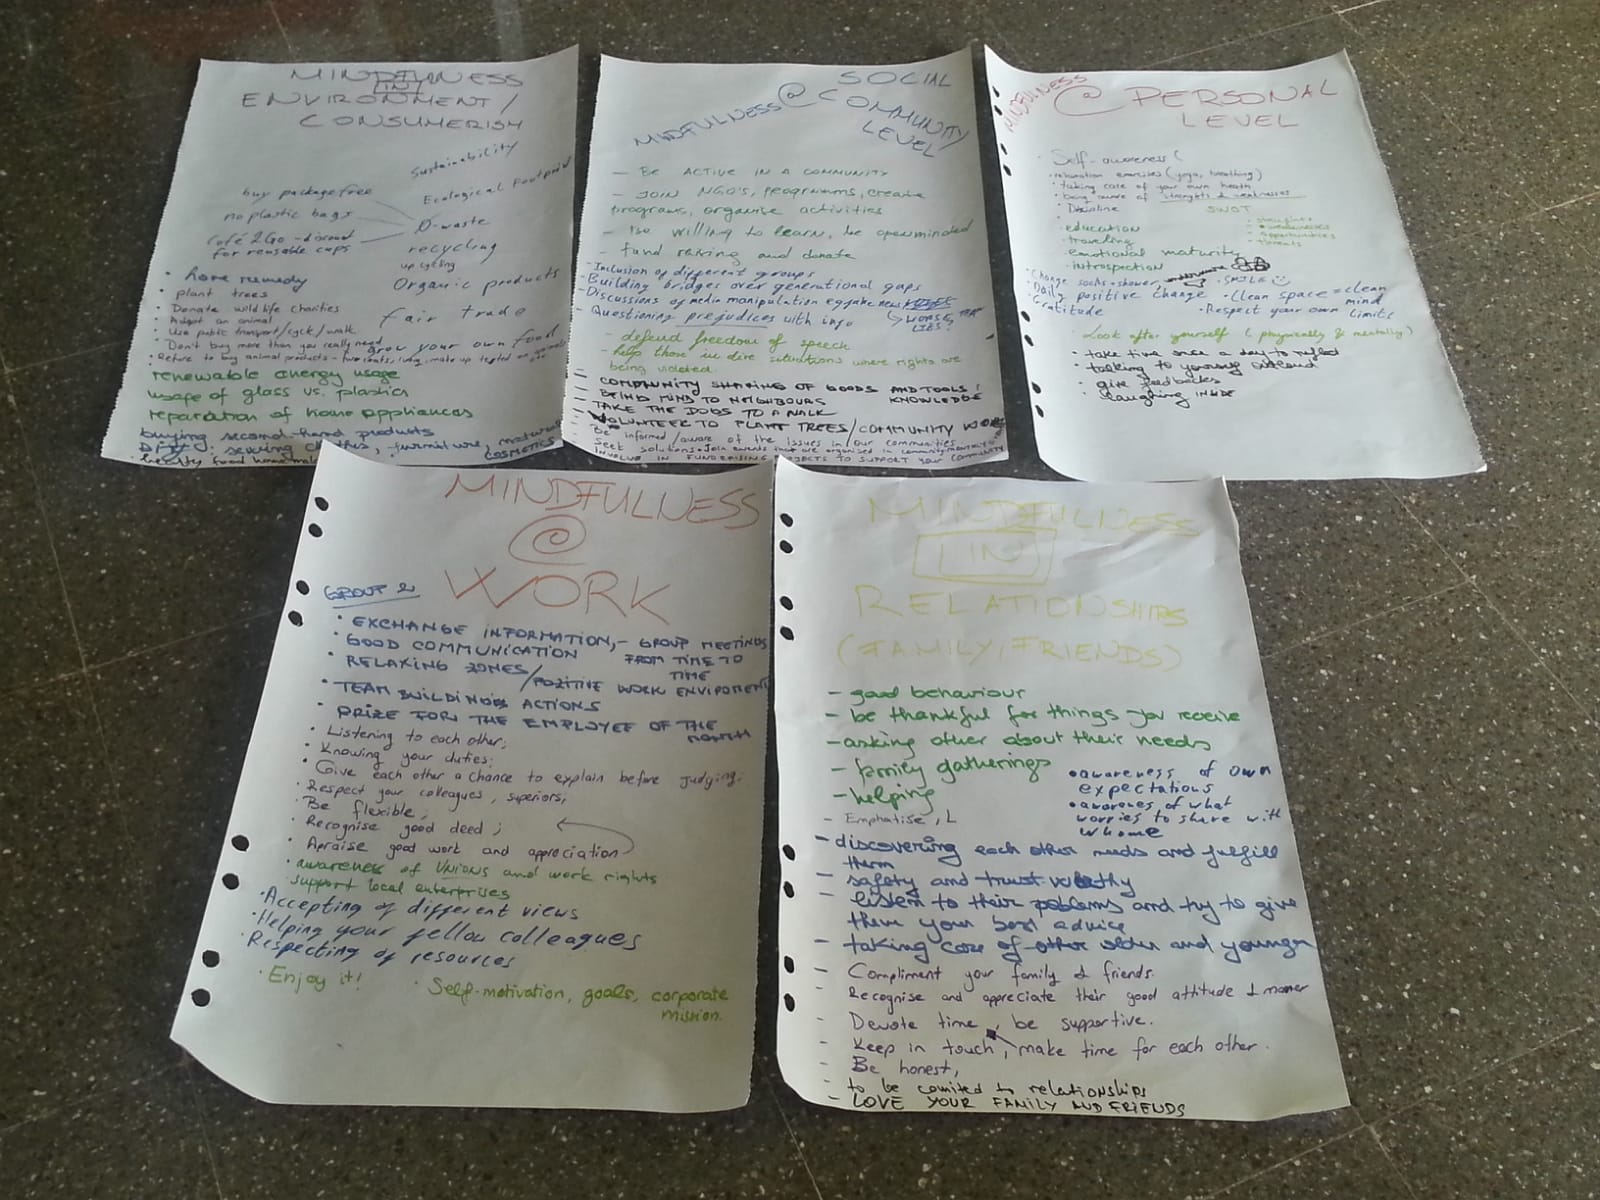 MINDFULNESS
IN
ENVIRONMENT/
CONSUMERISM
Sustainability
Ecological Footprint
buy package free
no plastic bags
0-waste
Café 2Go - discount
for reusable cups
recycling
up cycling
Organic products
fair trade
grow your own food
• home remedy
• plant trees
• Donate wild life charities
• Adopt an animal
• Use public transport/cycle/walk
• Don't buy more than you really need
• Refuse to buy animal products - fur coats, make up tested on animals
renewable energy usage
usage of glass vs. plastics
reparation of home appliances
buying second-hand products
sewing clothes, furniture, natural
cosmetics
food home
SOCIAL
MINDFULNESS @ COMMUNITY
LEVEL
- BE ACTIVE IN A COMMUNITY
- JOIN NGO'S, programms, create
programs, organise activities
- Be willing to learn, be openminded
- fund raising and donate
- Inclusion of different groups
- Building bridges over generational gaps
- Discussions of media manipulation eg fake news
- Questioning prejudices with info
LIES?
- defend freedom of speech
- help those in dire situations where rights are
being violated.
- COMMUNITY SHARING OF GOODS AND TOOLS!
KNOWLEDGE
- BEING KIND TO NEIGHBOURS
- TAKE THE DOGS TO A WALK
- VOLUNTEER TO PLANT TREES/COMMUNITY WORK
- Be informed/aware of the issues in/our communities
- Seek solutions • Join events that are organised in community
- INVOLVE IN FUNDRAISING PROJECTS TO SUPPORT your COMMUNITY
MINDFULNESS
@ PERSONAL
LEVEL
• Self-awareness (
• relaxation exercises (yoga, breathing)
• taking care of your own health
• being aware of strengths & weaknesses
• Discipline
SWOT
• strengths
• weaknesses
• opportunities
• threats
• education
• traveling
• emotional maturity
• introspection
• Change socks + shower,
• SMILE
• Daily positive change
• Clean space = clean
mind
• Gratitude
• Respect your own limits
• Look after yourself (physically & mentally)
• take time once a day to reflect
• talking to yourself outloud
• give feedbacks
• laughing INSIDE
MINDFULNESS
@
WORK
GROUP 2
• EXCHANGE INFORMATION, - GROUP MEETINGS
FROM TIME TO
TIME
• GOOD COMMUNICATION
• RELAXING ZONES/POZITIVE WORK ENVIPOMENT
• TEAM BUILDING ACTIONS
• PRIZE FOR THE EMPLOYEE OF THE
MONTH
• Listening to each other;
• Knowing your duties;
• Give each other a chance to explain before judging.
• Respect your colleagues, superiors;
• Be flexible;
• Recognise good deed;
• Apraise good work and appreciation
• awareness of UNIONS and work rights
• support local enterprises
• Accepting of different views
• Helping your fellow colleagues
• Respecting of resources
• Enjoy it!
• Self-motivation, goals, corporate
mission.
MINDFULNESS
IN
RELATIONSHIPS
(FAMILY, FRIENDS)
- good behaviour
- be thankful for things you receive
- asking other about their needs
- family gatherings
- helping
- Emphatise, L
• awareness of own
expectations
• awarenes of what
worries to share with
whome
- discovering each other needs and fulfill
them
- safety and trust
- listen to their problems and try to give
them your best advice
- taking care of other older and younger
- Compliment your family & friends.
- Recognise and appreciate their good attitude & manner
- Devote time, be supportive.
- Keep in touch, make time for each other.
- Be honest,
- to be comited to relationships
- LOVE YOUR FAMILY AND FRIENDS